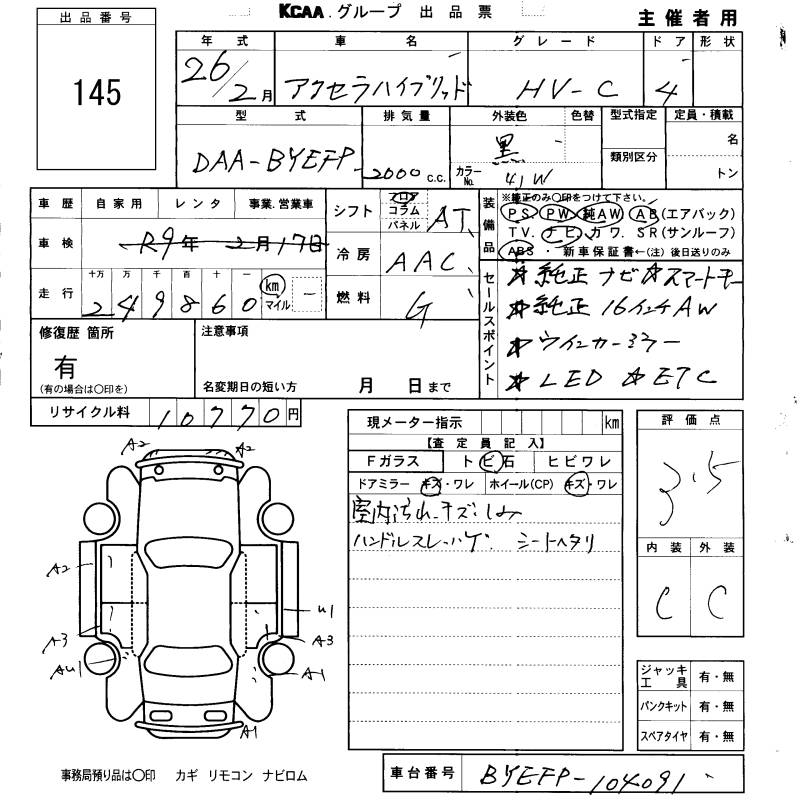 出品番号
145
KCAA.グループ 出品票
主催者用
年式 車名 グレード ドア 形状
26/2月 アクセラハイブリッド HV-C 4
型式 排気量 外装色 色替 型式指定 定員・積載
DAA-BYEFP 2000c.c. 黒 名
カラーNo. 41W 類別区分 トン
車歴 自家用 レンタ 事業.営業車
車検 R9年2月17日
走行 十万 万 千 百 十 一
249860 km マイル
シフト フロア コラム パネル AT
冷房 AAC
燃料 G
装備品
※純正のみ○印をつけて下さい。
PS PW 純AW AB(エアバック)
TV. ナビ. カワ. SR(サンルーフ)
ABS 新車保証書←(注)後日送りのみ
セールスポイント
★純正ナビ★スマートキー
★純正16インチAW
★ウインカーミラー
★LED ★ETC
修復歴 箇所
有
(有の場合は○印を)
注意事項
名変期日の短い方 月 日まで
リサイクル料 10770円
現メーター指示 km
【査定員記入】
Fガラス トビ石 ヒビワレ
ドアミラー キズ・ワレ ホイール(CP) キズ・ワレ
室内汚れ.キズ.しみ
ハンドルスレ・ハゲ シートヘタリ
評価点
3.5
内装 外装
C C
A2 A2
A2
A3
AU1
U1
A3
A1
A1
ジャッキ工具 有・無
パンクキット 有・無
スペアタイヤ 有・無
事務局預り品は○印 カギ リモコン ナビロム
車台番号 BYEFP-104091